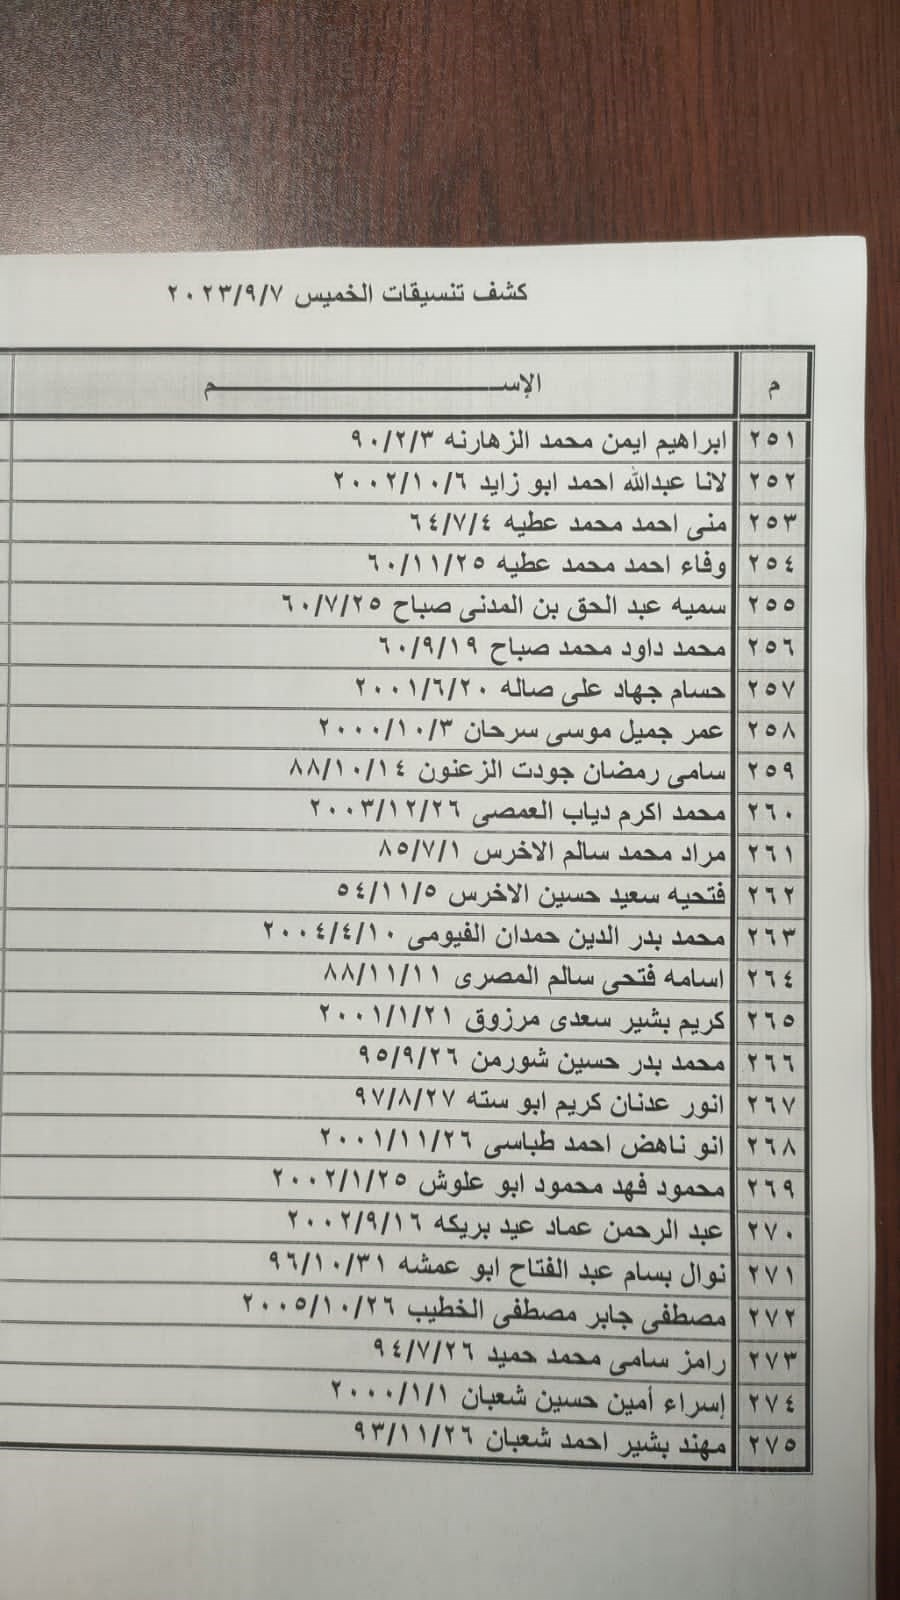 كشف تنسيقات الخميس ٢٠٢٣/٩/٧
م الإســــــــــــــــــم
٢٥١ ابراهيم ايمن محمد الزهارنه ٩٠/٢/٣
٢٥٢ لانا عبدالله احمد ابو زايد ٢٠٠٢/١٠/٦
٢٥٣ منى احمد محمد عطيه ٦٤/٧/٤
٢٥٤ وفاء احمد محمد عطيه ٦٠/١١/٢٥
٢٥٥ سميه عبد الحق بن المدنى صباح ٦٠/٧/٢٥
٢٥٦ محمد داود محمد صباح ٦٠/٩/١٩
٢٥٧ حسام جهاد على صاله ٢٠٠١/٦/٢٠
٢٥٨ عمر جميل موسى سرحان ٢٠٠٠/١٠/٣
٢٥٩ سامى رمضان جودت الزعنون ٨٨/١٠/١٤
٢٦٠ محمد اكرم دياب العمصى ٢٠٠٣/١٢/٢٦
٢٦١ مراد محمد سالم الاخرس ٨٥/٧/١
٢٦٢ فتحيه سعيد حسين الاخرس ٥٤/١١/٥
٢٦٣ محمد بدر الدين حمدان الفيومى ٢٠٠٤/٤/١٠
٢٦٤ اسامه فتحى سالم المصرى ٨٨/١١/١١
٢٦٥ كريم بشير سعدى مرزوق ٢٠٠١/١/٢١
٢٦٦ محمد بدر حسين شورمن ٩٥/٩/٢٦
٢٦٧ انور عدنان كريم ابو سته ٩٧/٨/٢٧
٢٦٨ انو ناهض احمد طباسى ٢٠٠١/١١/٢٦
٢٦٩ محمود فهد محمود ابو علوش ٢٠٠٢/١/٢٥
٢٧٠ عبد الرحمن عماد عيد بريكه ٢٠٠٢/٩/١٦
٢٧١ نوال بسام عبد الفتاح ابو عمشه ٩٦/١٠/٣١
٢٧٢ مصطفى جابر مصطفى الخطيب ٢٠٠٥/١٠/٢٦
٢٧٣ رامز سامى محمد حميد ٩٤/٧/٢٦
٢٧٤ إسراء أمين حسين شعبان ٢٠٠٠/١/١
٢٧٥ مهند بشير احمد شعبان ٩٣/١١/٢٦